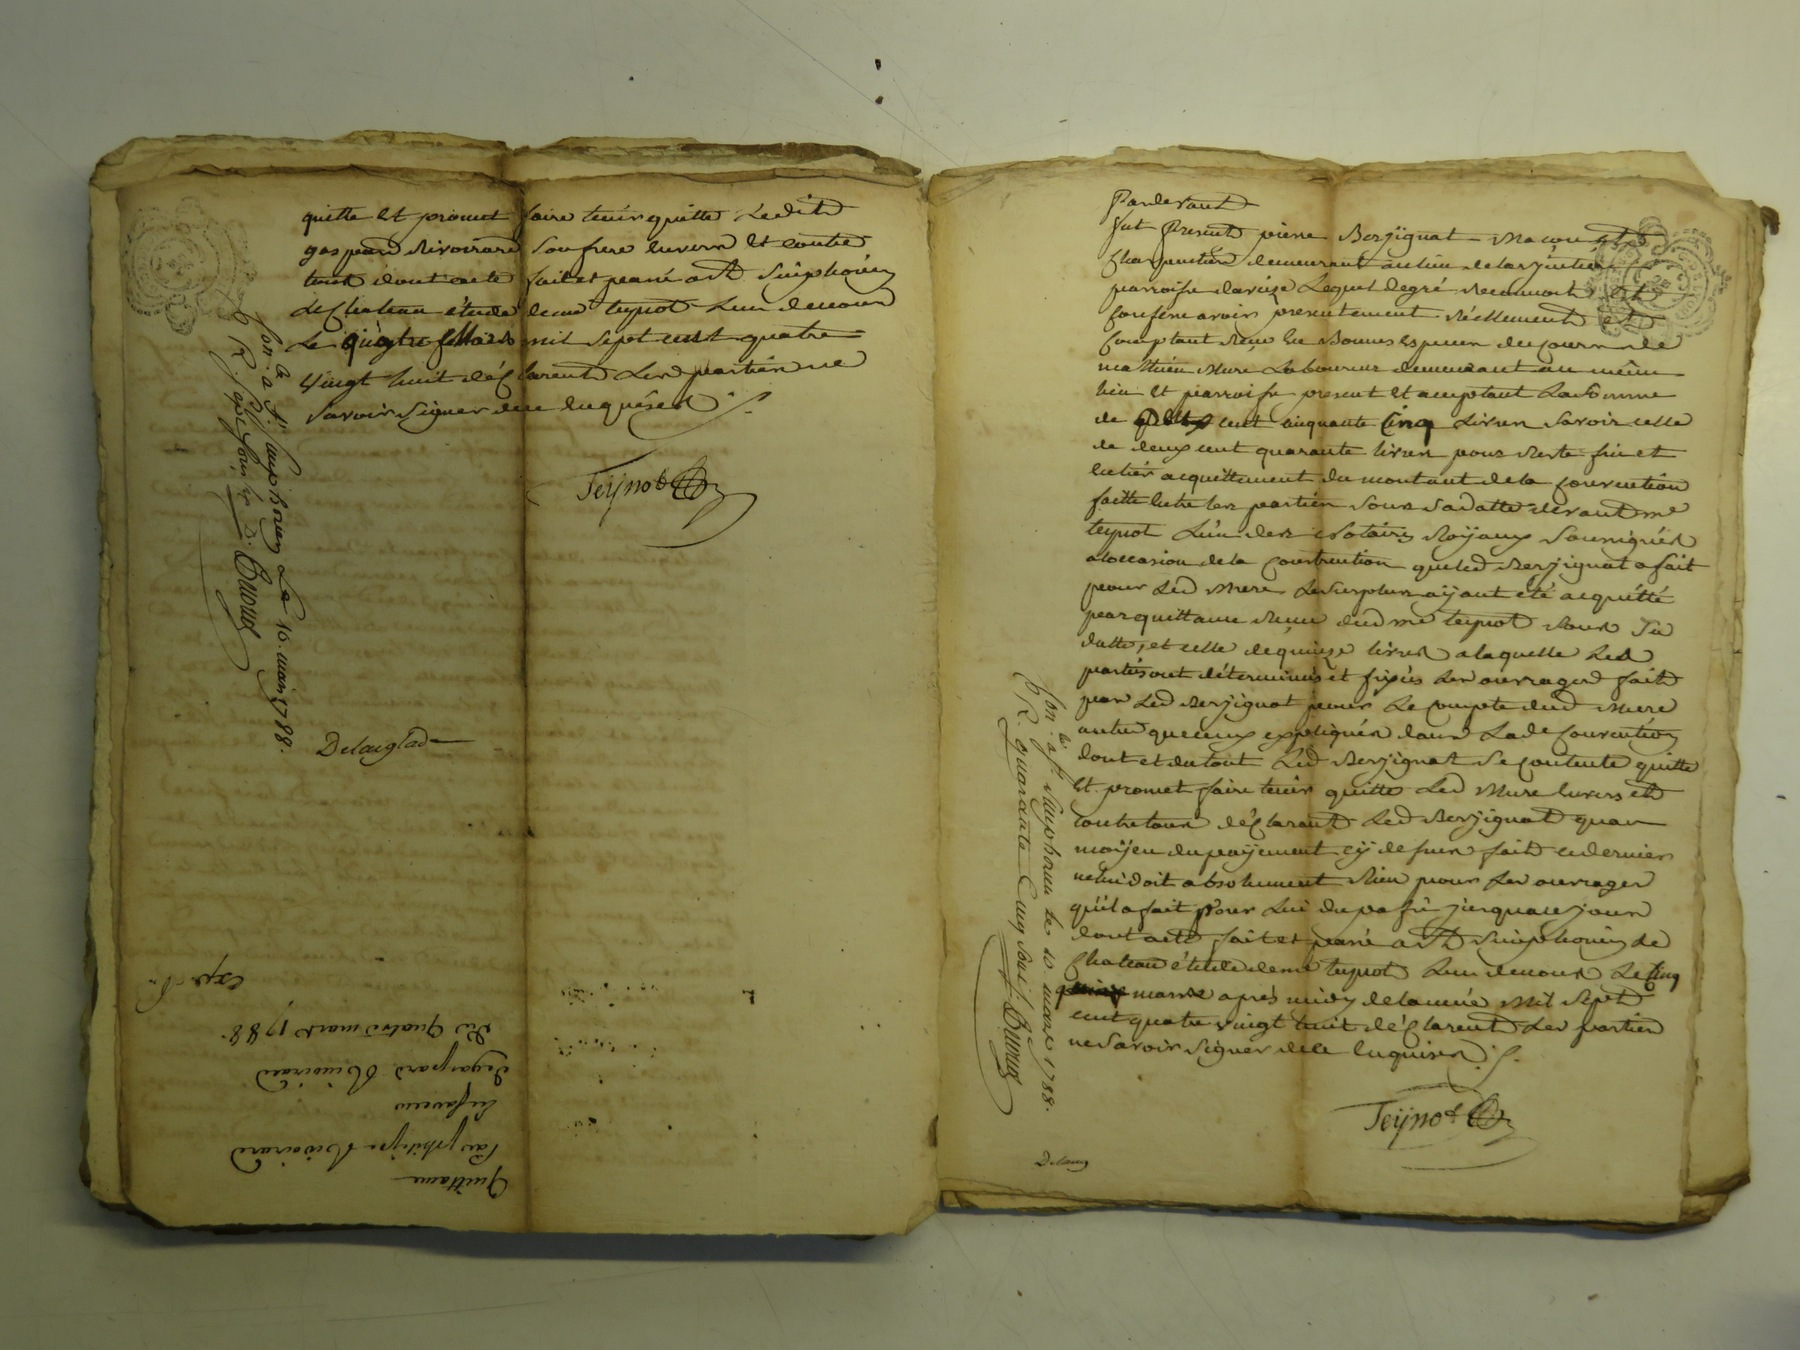 quitte et promet faire tenir quitte Ledit
gaspard Rivoirard son frere envers et contre
tous dont acte fait et passé a St Simphorien
Le Chateau étude de me teynot Lun de nous
Le quatre Mars mil sept cent quatre
vingt huit déClarent Les partien ne
savoir signer de ce enquéses
Teynot
Con. lé a St. Simphorien Le 10. mars 1788.
R. sept sous
Delanglade
Quittance
par philipe Rivoirard
en faveur
de gaspard Rivoirard
Du Quatre mars 1788.
expd.
Pardevant
fut Present pierre Berjignat Macon et
Charpentier demeurant au lieu de
parroisse Laveize Lequel de gré Reconnoit et
Confesse avoir presentement Réellement et
Comptant Reçu en Bonnes Especes du Cours de
mathieu Mure Laboureur demeurant au même
lieu et parroisse present et acceptant La somme
de cent cinquante Cinq Livres savoir celle
de deux cent quarante livres pour Reste fin et
entier acquittement du montant de la Convention
faitte entre les parties sous sa datte devant me
teynot Lun des Notaires Royaux soussignés
a loccasion de la Construction que led Berjignat a fait
pour Led Mure Le surplus aÿant été acquitté
par quittance Reçue dud me teynot sous sa
datte, et celle de quinze livres a laquelle Les
parties ont déterminés et fixés Les ouvrages faits
par Led Berjignat pour Le Compte dud Mure
autre que ceux expliqués dans Lade Convention
dont et du tout Led Berjignat se Contente quitte
Et promet faire tenir quitte Led Mure envers et
contre tous déClarant Led Berjignat quau
moÿen du paÿement cÿ dessus fait ce dernier
ne lui doit absolument Rien pour Les ouvrages
qu'il a fait pour Lui du passé jusqua ce jour
dont acte fait et passé a St Simphorien de
Chateau étude de me teynot Lun de nous Le Cinq
mars apres midy de lannée Mil sept
cent quatre vingt huit déClarent Les partien
ne savoir signer de ce enquises
Teynot
Con. lé a St. Simphorien Le 10. mars 1788.
R. quarante Cinq sous